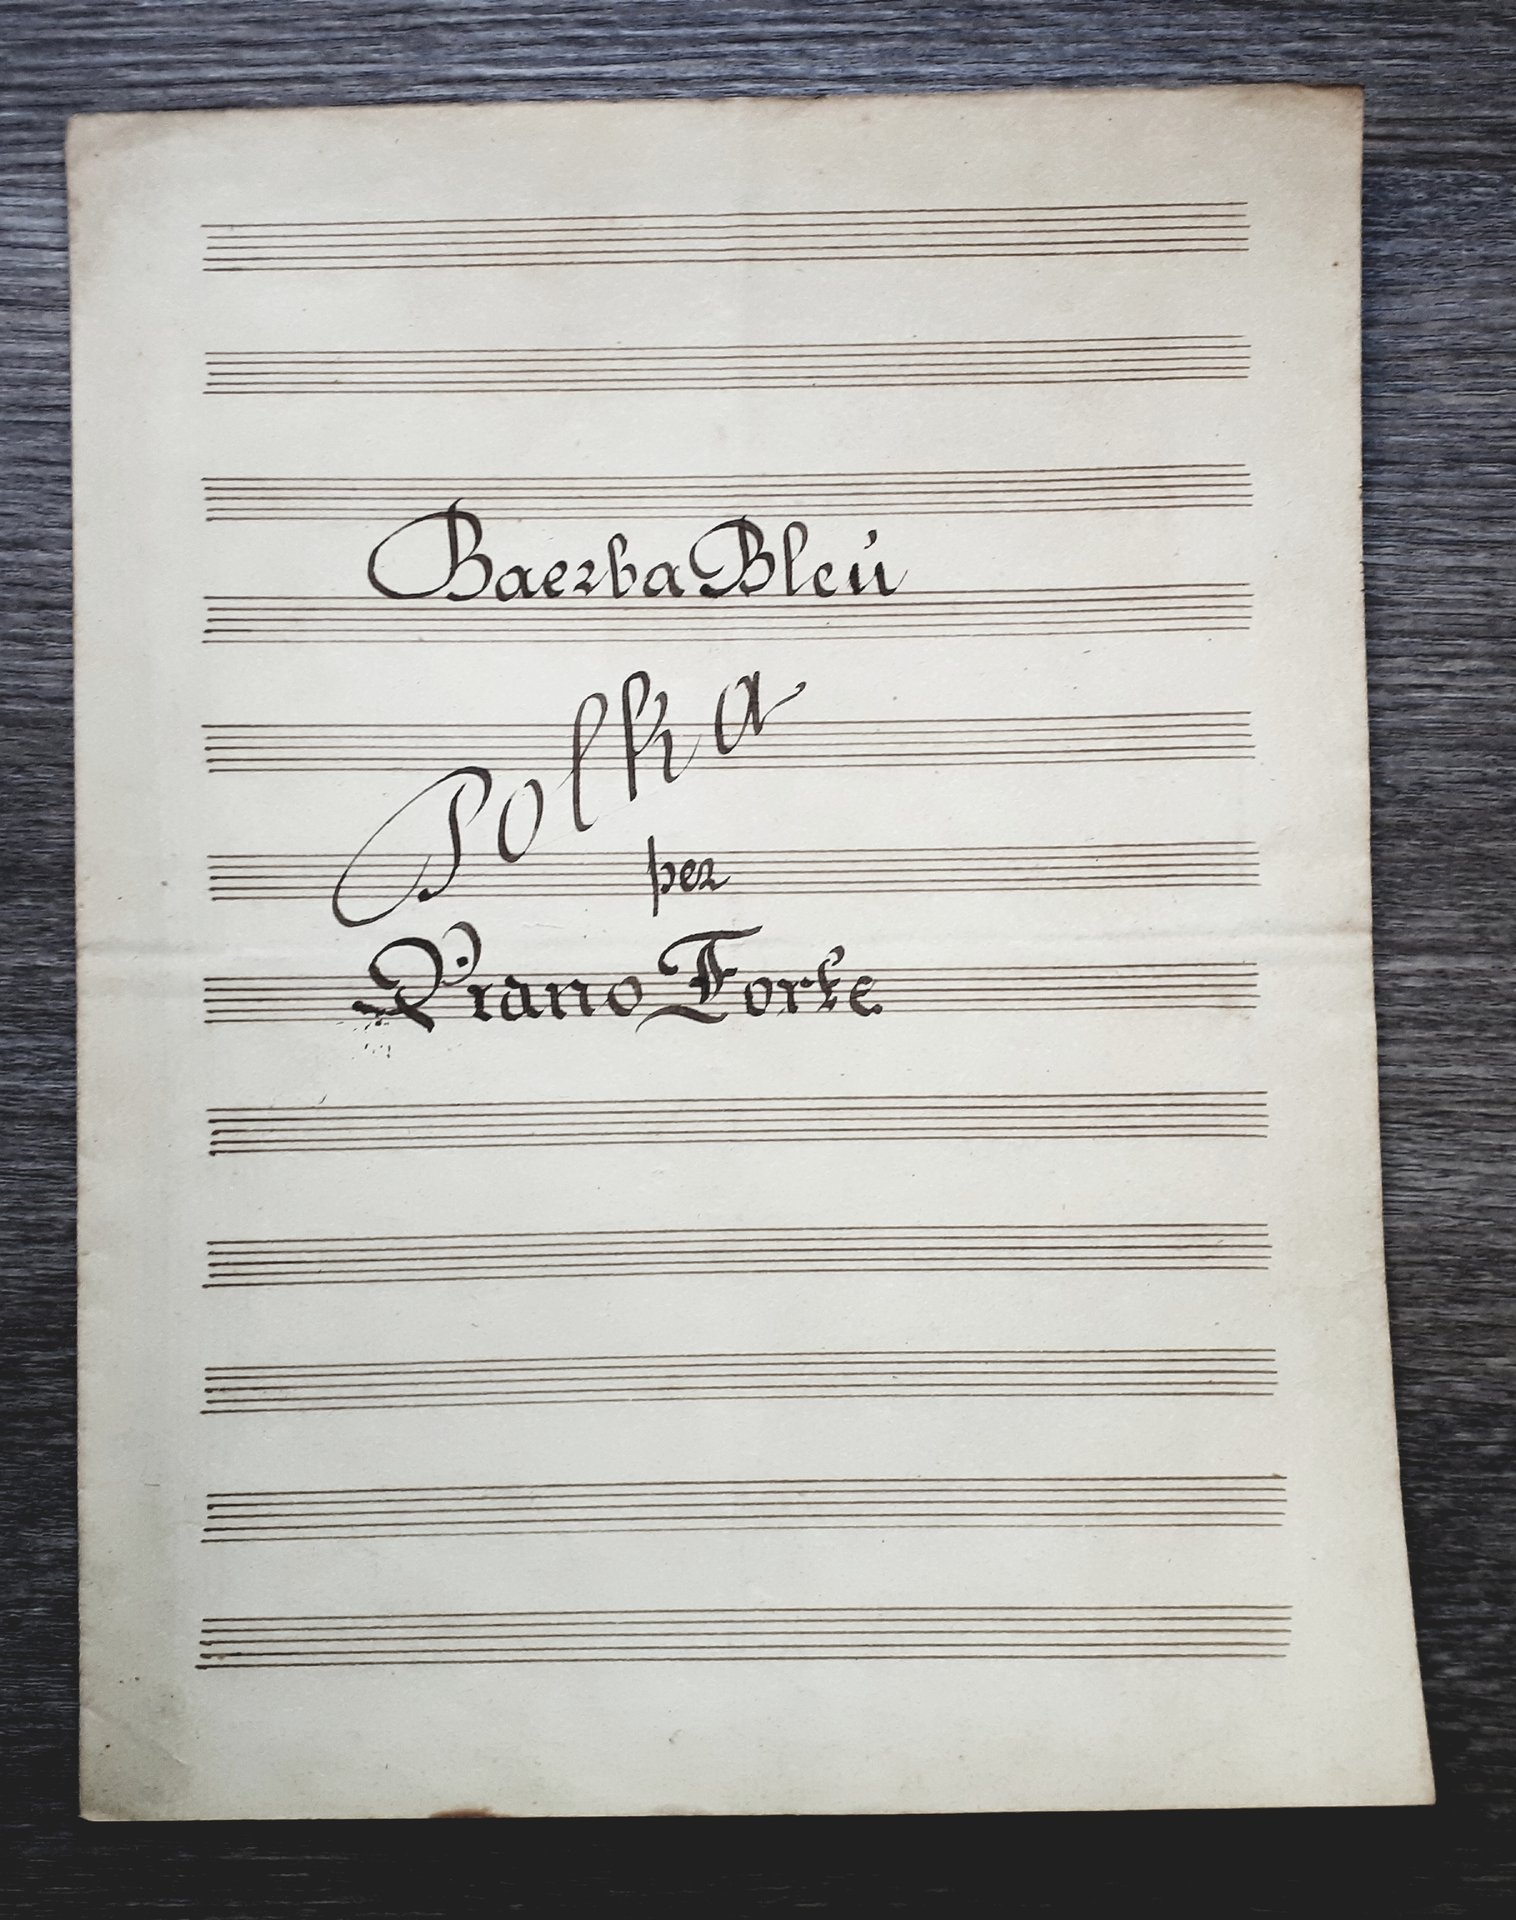 Baerba Bleù
Polka
per
Piano Forte